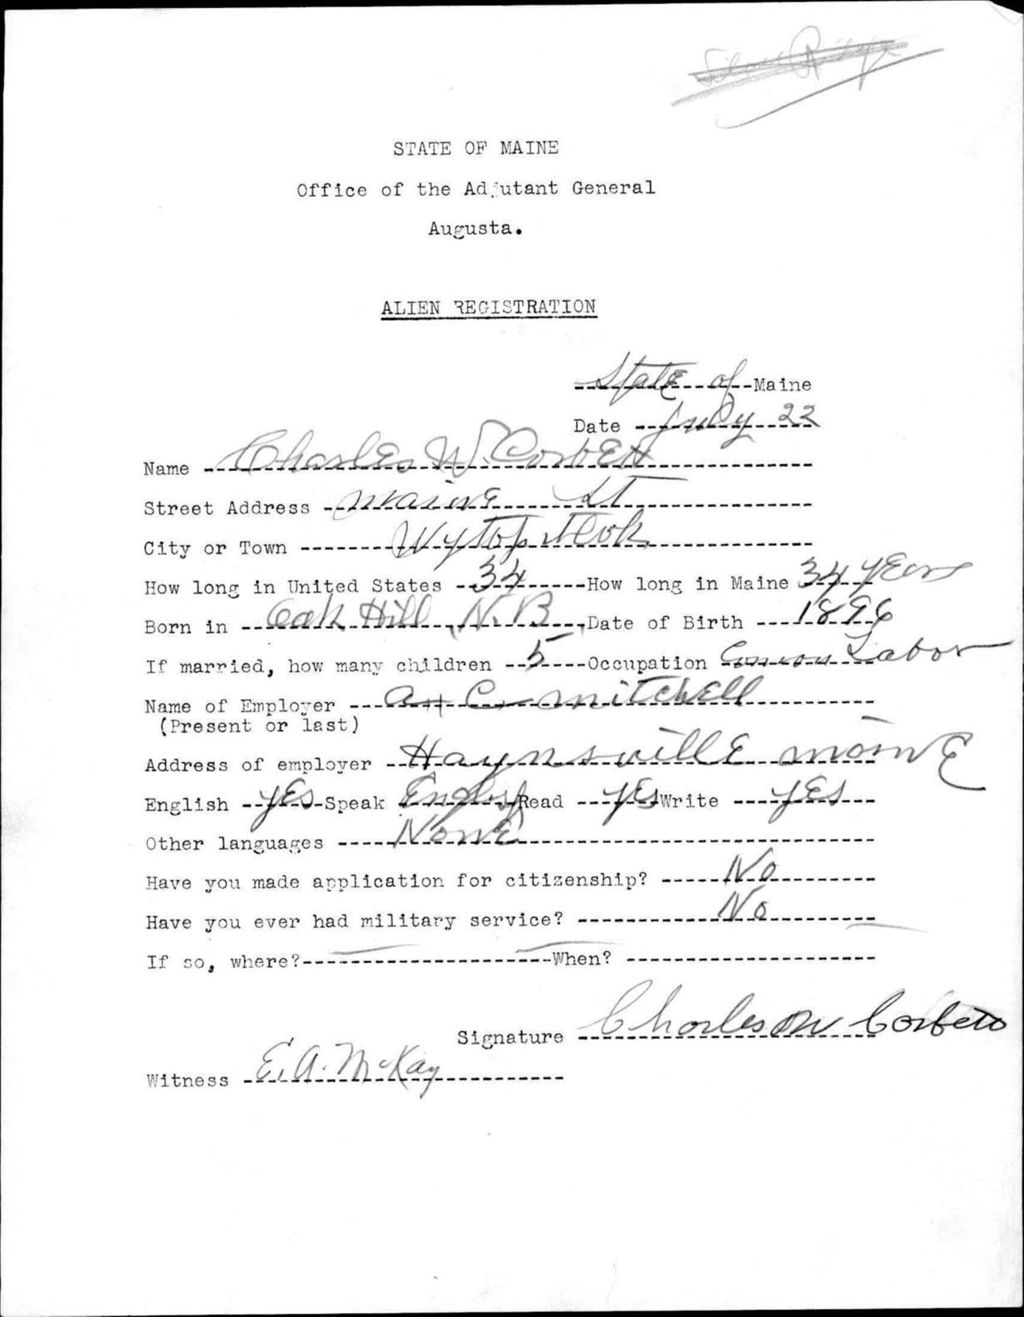 STATE OF MAINE
Office of the Adjutant General
Augusta.
ALIEN REGISTRATION
State of Maine
Date July 22
Name Charles W. Corbett
Street Address Maine St
City or Town Wytopitlok
How long in United States 34 How long in Maine 34 years
Born in Oak Hill, N.B. Date of Birth 1896
If married, how many children 5 Occupation Labor
Name of Employer C. Mitchell
(Present or last)
Address of employer Haynsville Maine
English yes Speak English Read yes Write yes
Other languages None
Have you made application for citizenship? No
Have you ever had military service? No
If so, where? When?
Signature Charles W Corbett
Witness E. A. McKay